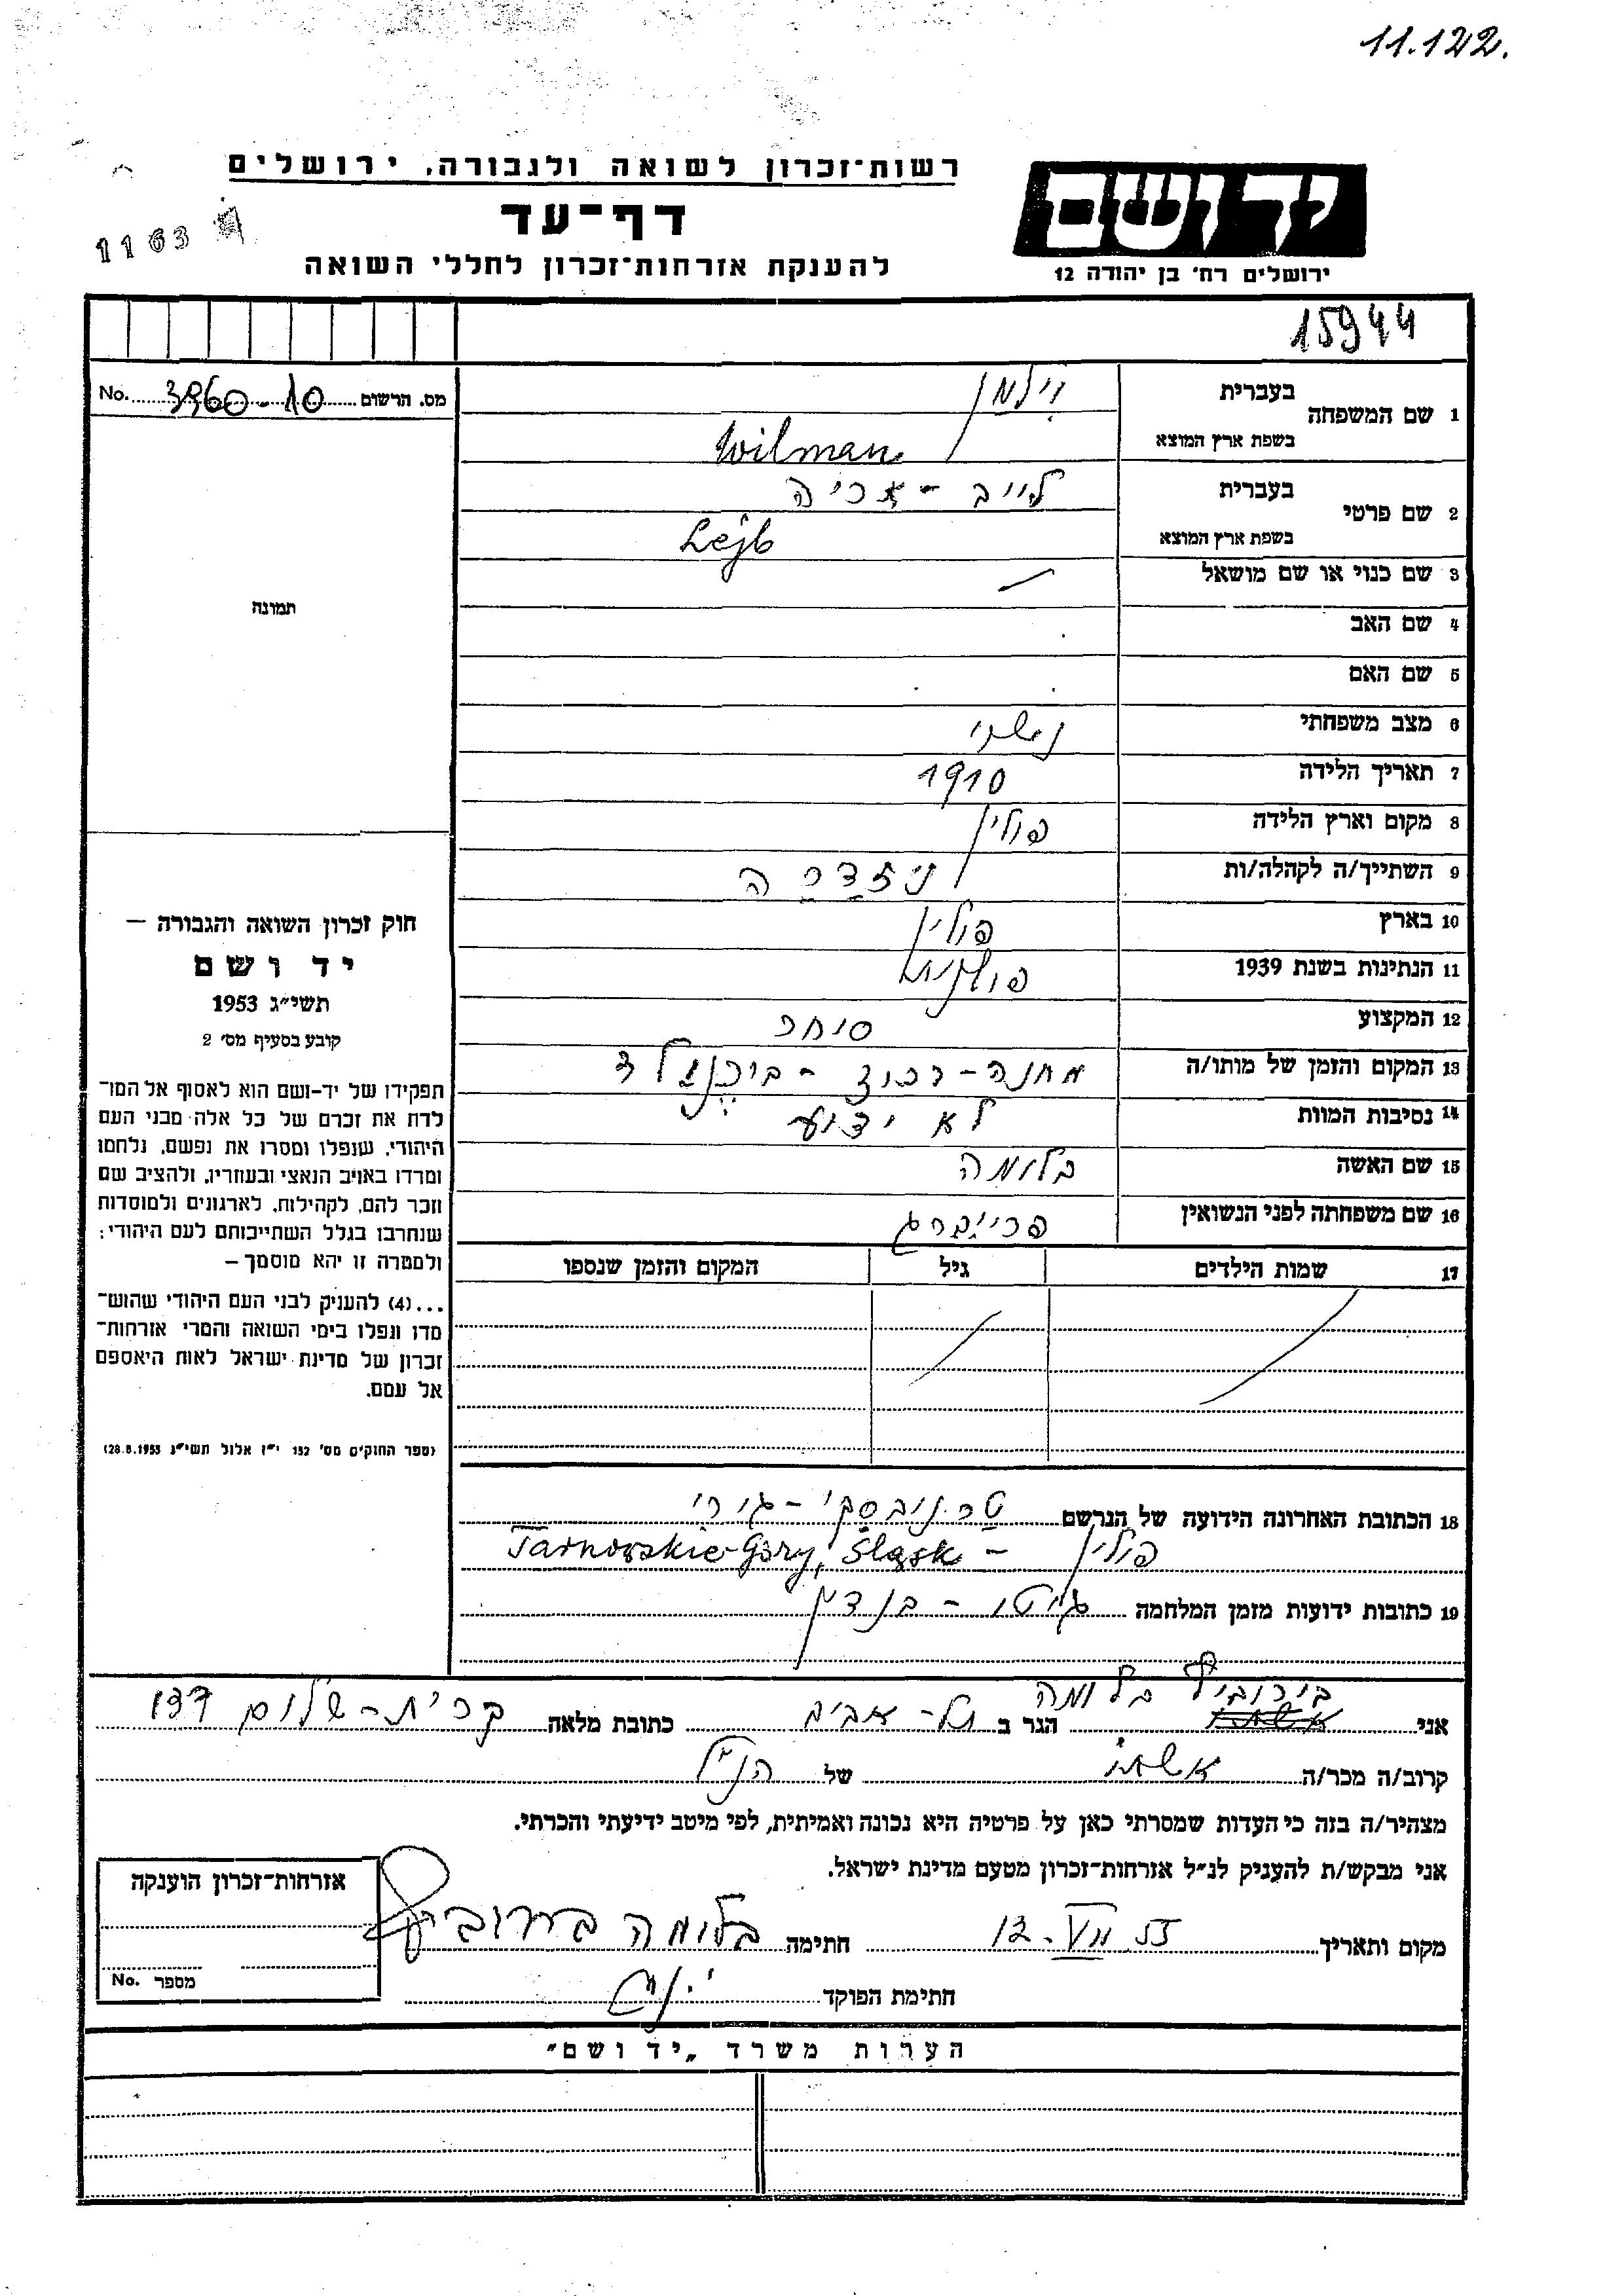 11.122.
רשות־זכרון לשואה ולגבורה, ירושלים
דף־עד
להענקת אזרחות־זכרון לחללי השואה
יד ושם
ירושלים רח' בן יהודה 12
1163
15944
מס. הרשום 3960-10 No.
1 שם המשפחה בעברית וילמן
בשפת ארץ המוצא Wilman
2 שם פרטי בעברית לייב - אריה
בשפת ארץ המוצא Lejb
3 שם כנוי או שם מושאל
4 שם האב
5 שם האם
6 מצב משפחתי נשוי
7 תאריך הלידה 1910
8 מקום וארץ הלידה פולין
9 השתייך/ה לקהלה/ות
10 בארץ פולין
11 הנתינות בשנת 1939 פולנית
12 המקצוע סוחר
13 המקום והזמן של מותו/ה מחנה-רכוז - בוכנולד
14 נסיבות המוות לא ידוע
15 שם האשה בלומה
16 שם משפחתה לפני הנשואין פרייברג
17 שמות הילדים גיל המקום והזמן שנספו
18 הכתובת האחרונה הידועה של הנרשם טרנובסקי - גורי
פולין - Tarnowskie-Góry, Śląsk
19 כתובות ידועות מזמן המלחמה גיטו - בנדין
תמונה
חוק זכרון השואה והגבורה —
יד ושם
תשי״ג 1953
קובע בסעיף מס' 2
תפקידו של יד-ושם הוא לאסוף אל המו־
לדת את זכרם של כל אלה מבני העם
היהודי, שנפלו ומסרו את נפשם, נלחמו
ומרדו באויב הנאצי ובעוזריו, ולהציב שם
וזכר להם, לקהילות, לארגונים ולמוסדות
שנחרבו בגלל השתייכותם לעם היהודי;
ולמטרה זו יהא מוסמך —
...(4) להעניק לבני העם היהודי שהוש־
מדו ונפלו בימי השואה והמרי אזרחות־
זכרון של מדינת ישראל לאות היאספם
אל עמם.
(ספר החוקים מס' 132 י״ז אלול תשי״ג 28.8.1953)
אני בלומה הגר ב תל-אביב כתובת מלאה קרית-שלום 737
קרוב/ה מכר/ה אשתו של הנ״ל
מצהיר/ה בזה כי העדות שמסרתי כאן על פרטיה היא נכונה ואמיתית, לפי מיטב ידיעתי והכרתי.
אני מבקש/ת להעניק לנ״ל אזרחות־זכרון מטעם מדינת ישראל.
מקום ותאריך 12.VII 55 חתימה בלומה
חתימת הפוקד
אזרחות־זכרון הוענקה
מספר No.
הערות משרד „יד ושם״